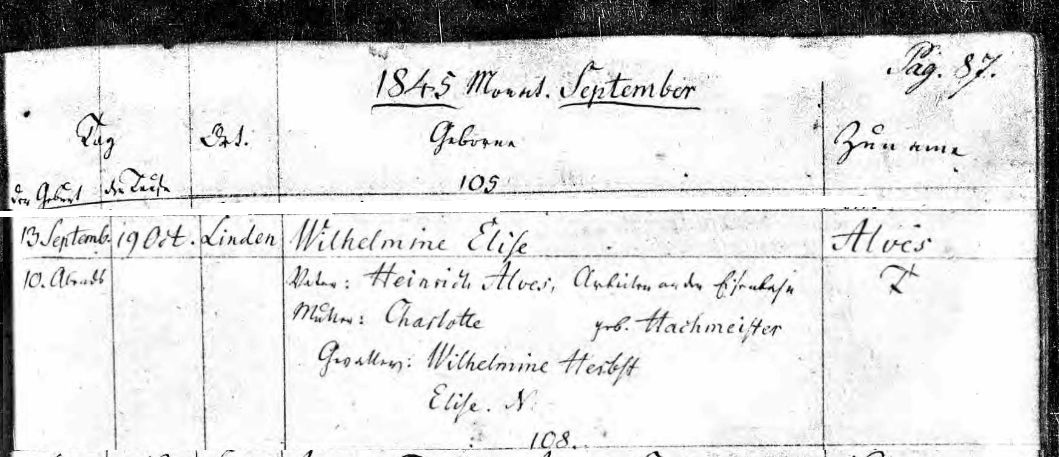 Pag. 87.
1845 Monat. September
Tag Ort. Geborne Zuname
der Geburt der Taufe
105
13 Septemb. 19 Oct. Linden Wilhelmine Elise Alves
10. Abends Vater: Heinrich Alves, Arbeiter an der Eisenbahn
Mutter: Charlotte geb. Hachmeister
Gevattern: Wilhelmine Herbst
Elise. N.
108.